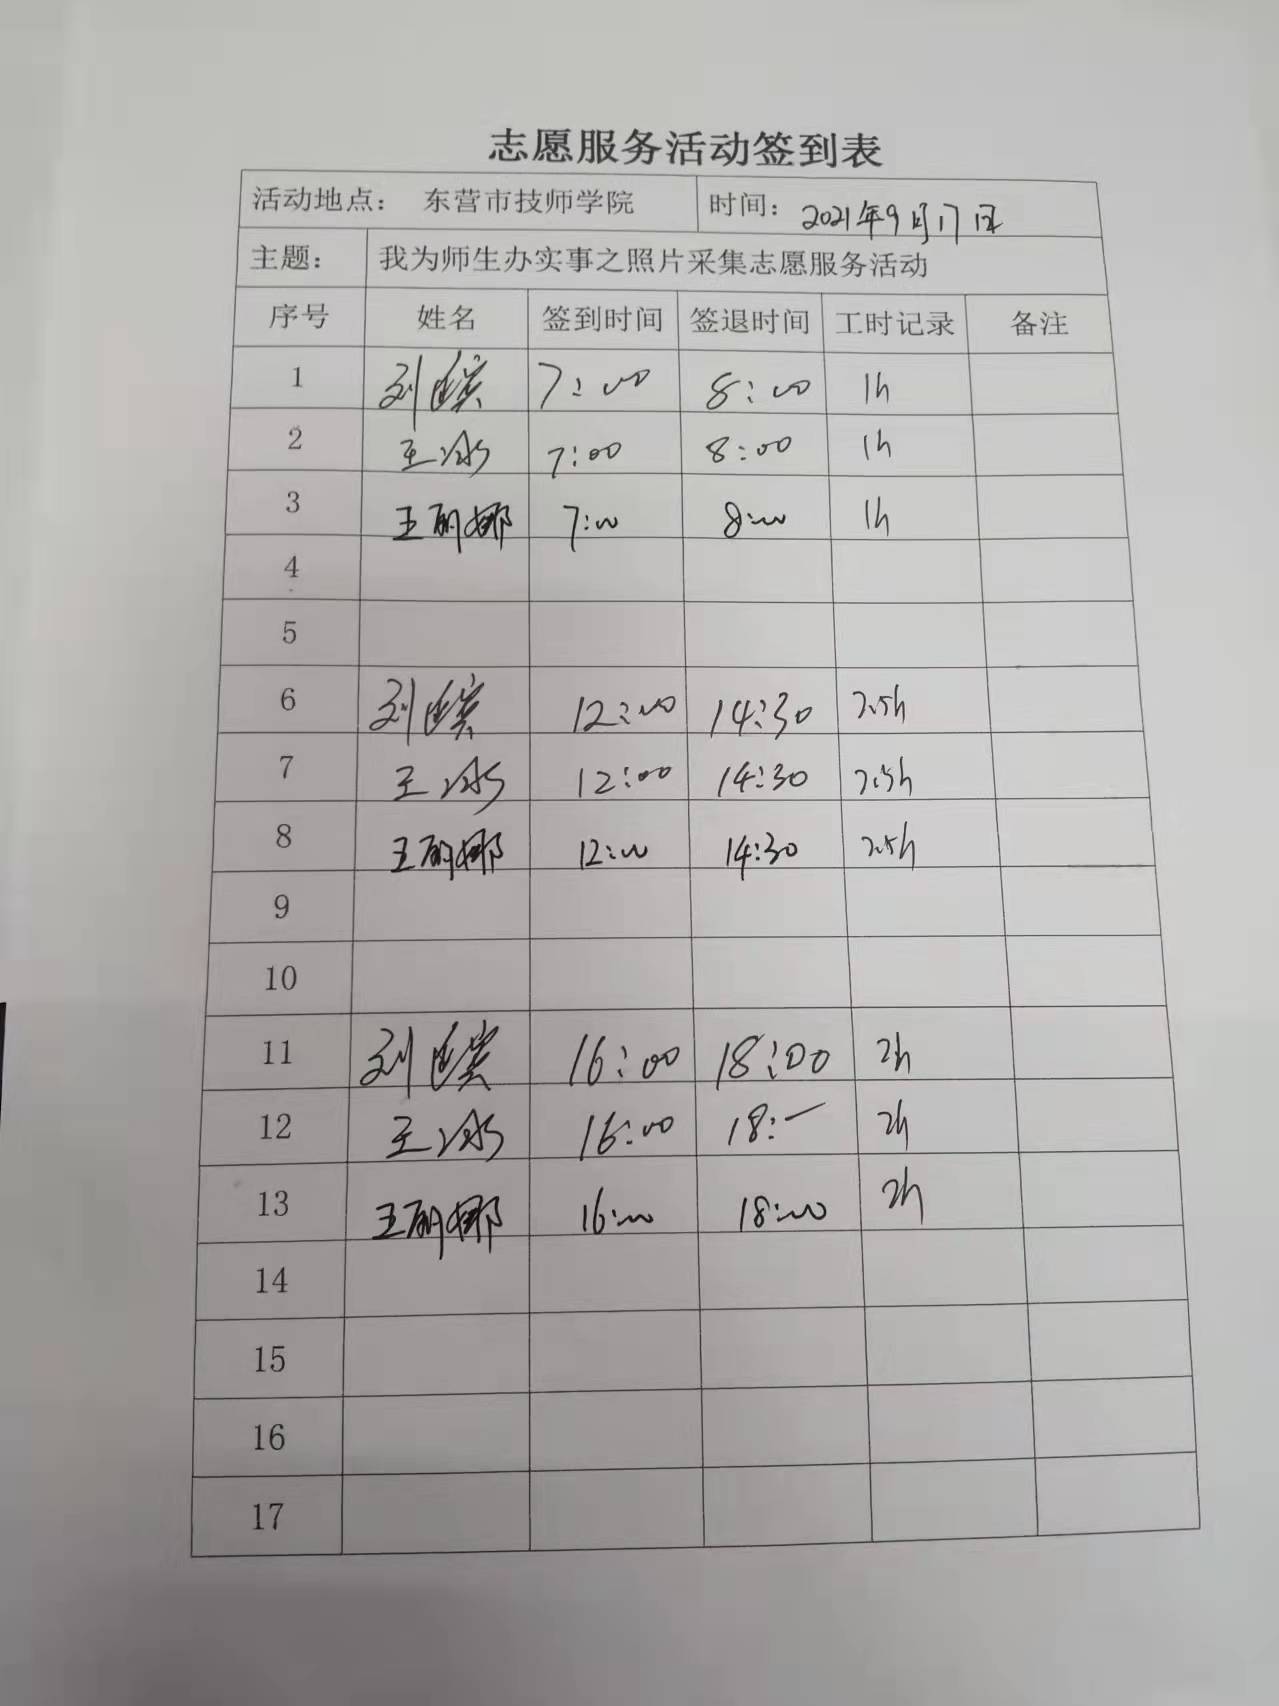 志愿服务活动签到表
活动地点： 东营市技师学院 时间： 2021年9月17日
主题： 我为师生办实事之照片采集志愿服务活动
序号 姓名 签到时间 签退时间 工时记录 备注
1 刘 7:00 8:00 1h
2 王冰 7:00 8:00 1h
3 王丽娜 7:00 8:00 1h
4
5
6 刘 12:00 14:30 2.5h
7 王冰 12:00 14:30 2.5h
8 王丽娜 12:00 14:30 2.5h
9
10
11 刘 16:00 18:00 2h
12 王冰 16:00 18:— 2h
13 王丽娜 16:00 18:00 2h
14
15
16
17